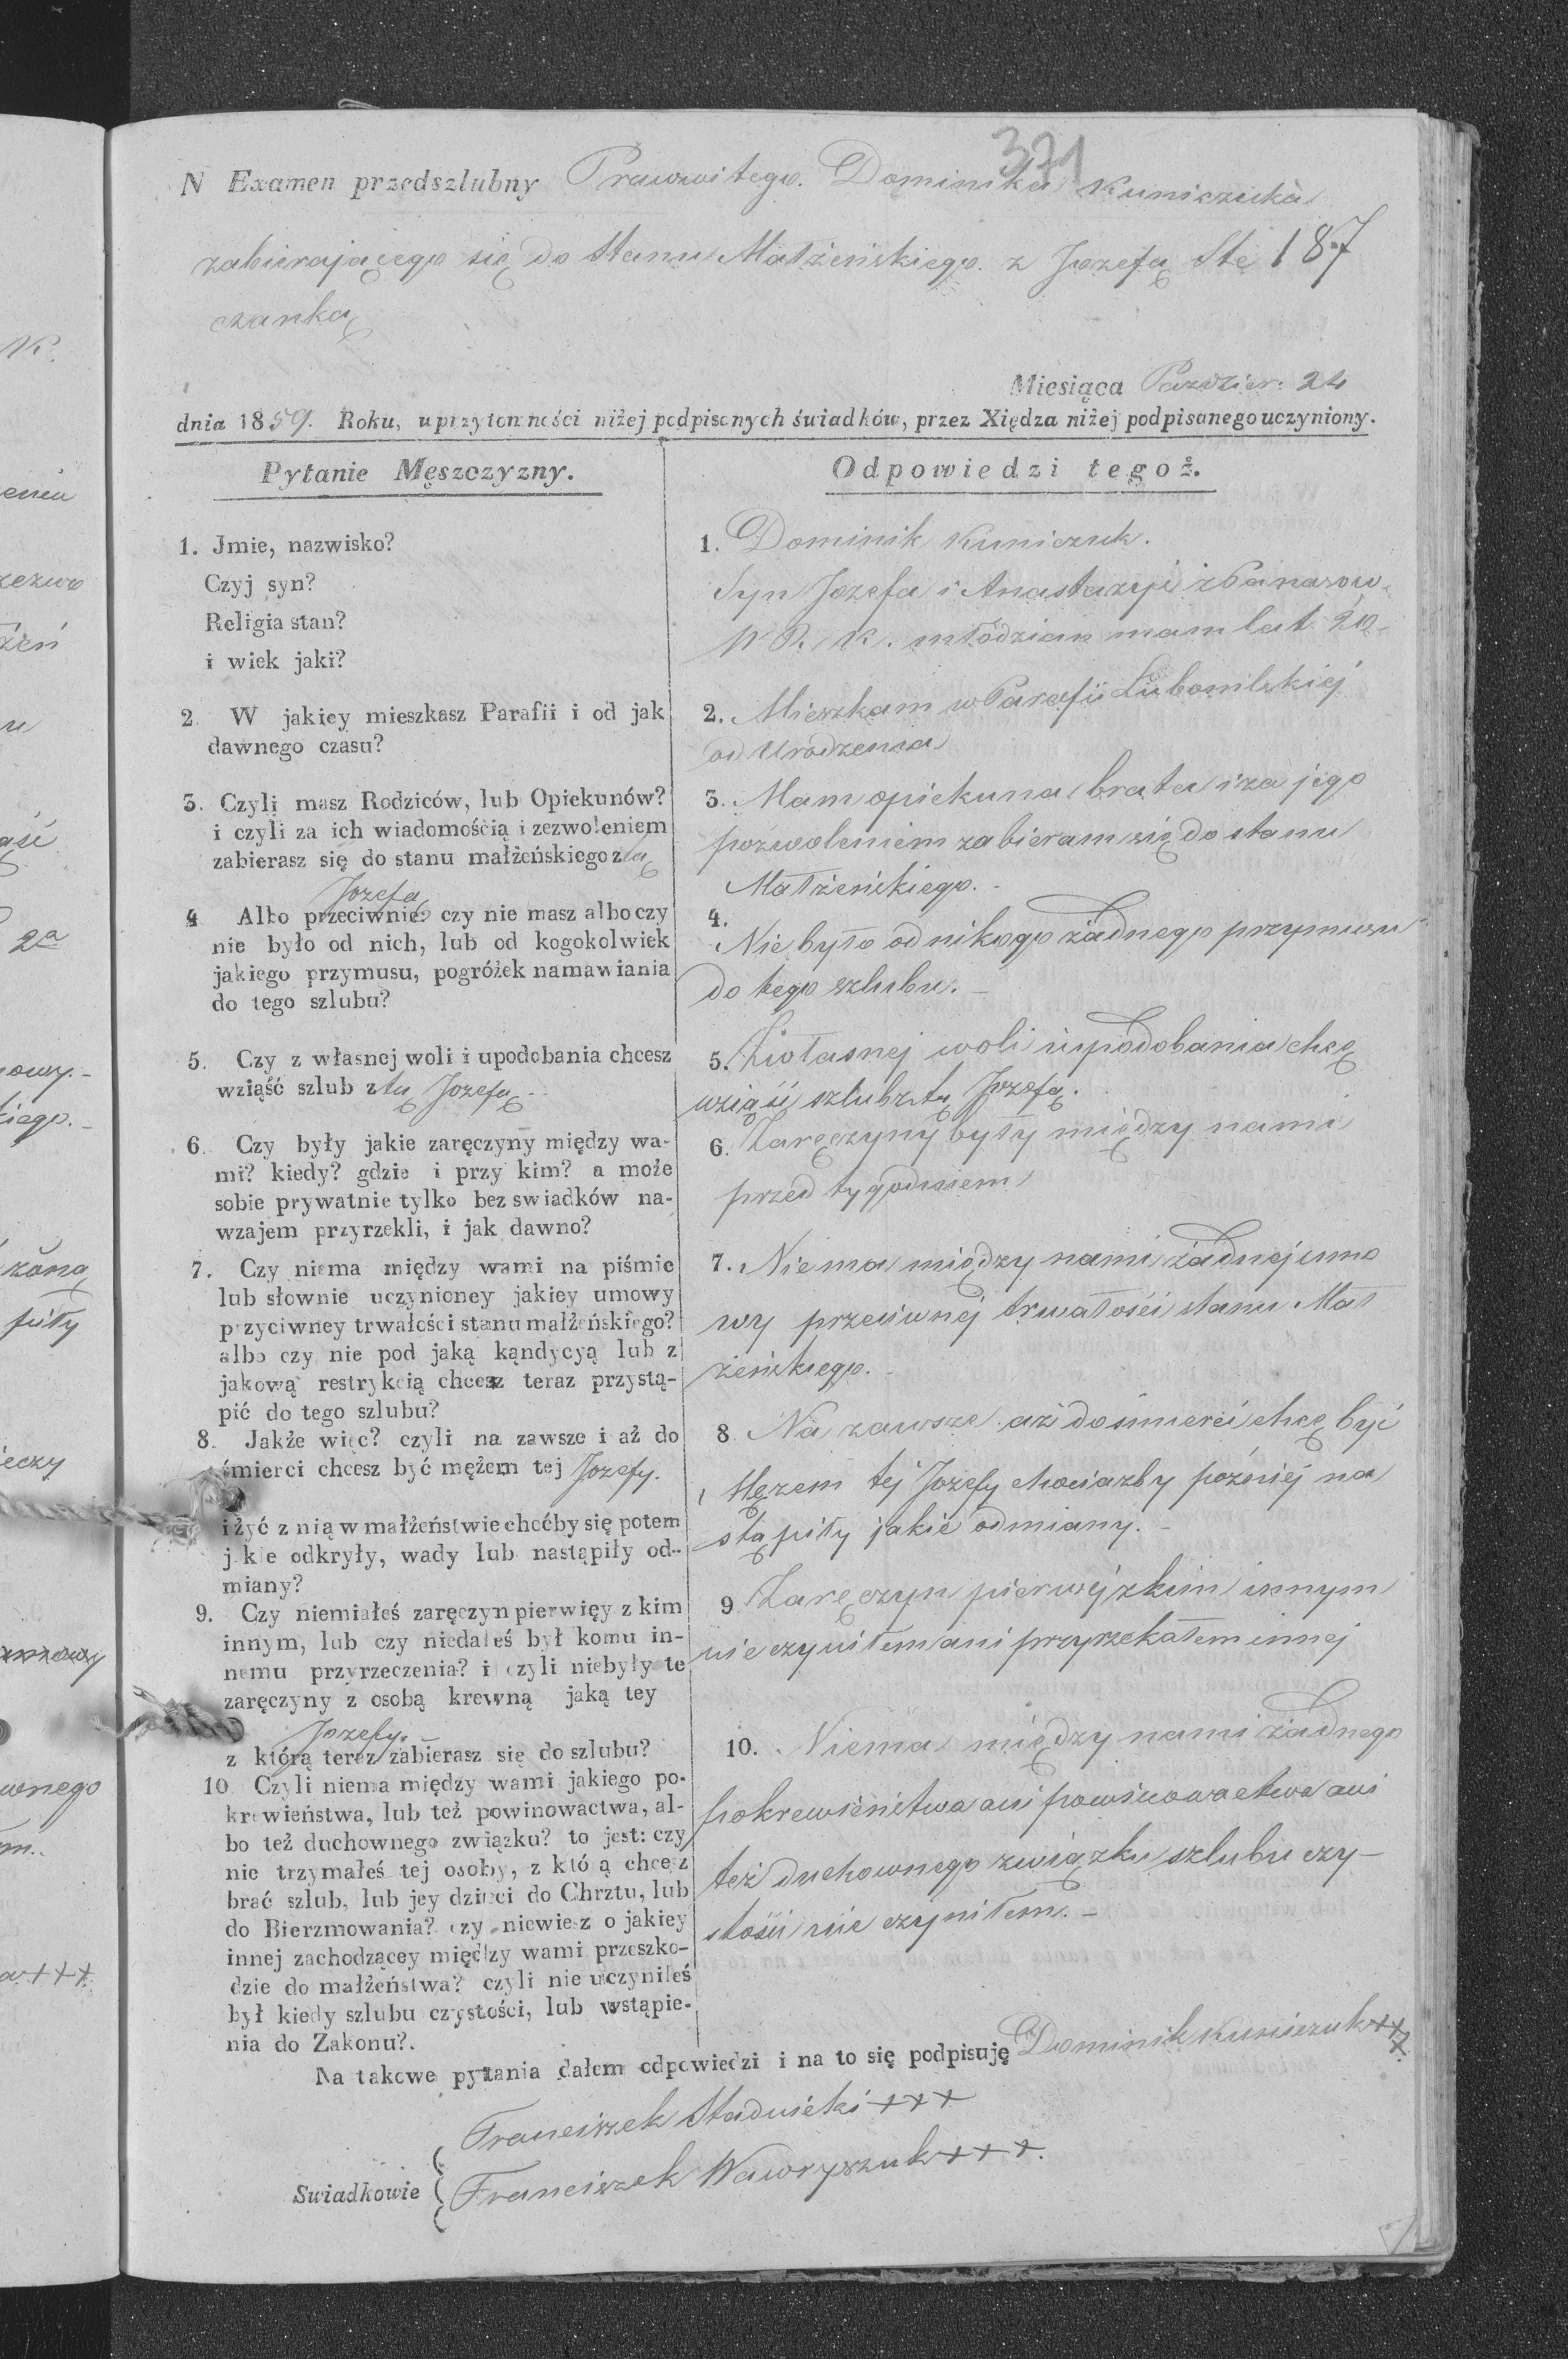 371
N Examen przedszlubny Prawowitego. Dominika Kuniczuka
zabierającego się do Stanu Małżeńskiego. z Jozefą Ste 187
czanką
Miesiąca Pazdzier: 24
dnia 1859. Roku, uprzytomności niżej podpisanych świadków, przez Xiędza niżej podpisanego uczyniony.
Pytanie Męszczyzny.
1. Jmie, nazwisko?
Czyj syn?
Religia stan?
i wiek jaki?
2. W jakiey mieszkasz Parafii i od jak
dawnego czasu?
3. Czyli masz Rodziców, lub Opiekunów?
i czyli za ich wiadomością i zezwoleniem
zabierasz się do stanu małżeńskiego z tą
Jozefą
4 Albo przeciwnie: czy nie masz albo czy
nie było od nich, lub od kogokolwiek
jakiego przymusu, pogróżek namawiania
do tego szlubu?
5. Czy z własnej woli i upodobania chcesz
wziąść szlub z tą Jozefą.
6. Czy były jakie zaręczyny między wa-
mi? kiedy? gdzie i przy kim? a może
sobie prywatnie tylko bez swiadków na-
wzajem przyrzekli, i jak dawno?
7. Czy niema między wami na piśmie
lub słownie uczynioney jakiey umowy
przyciwney trwałości stanu małżeńskiego?
albo czy nie pod jaką kądycyą lub z
jakową restrykcią chcesz teraz przystą-
pić do tego szlubu?
8. Jakże więc? czyli na zawsze i aż do
śmierci chcesz być mężem tej Jozefy.
i żyć z nią w małżeństwie choćby się potem
jakie odkryły, wady lub nastąpiły od-
miany?
9. Czy niemiałeś zaręczyn pierwięy z kim
innym, lub czy niedałeś był komu in-
nemu przyrzeczenia? i czyli niebyły te
zaręczyny z osobą krewną jaką tey
Jozefy.
z którą teraz zabierasz się do szlubu?
10 Czyli niema między wami jakiego po-
krewieństwa, lub też powinowactwa, al-
bo też duchownego związku? to jest: czy
nie trzymałeś tej osoby, z którą chcesz
brać szlub, lub jey dzieci do Chrztu, lub
do Bierzmowania? czy niewiesz o jakiey
innej zachodzącey między wami przeszko-
dzie do małżeństwa? czyli nie uczyniłeś
był kiedy szlubu czystości, lub wstąpie-
nia do Zakonu?.
Odpowiedzi tegoż.
1. Dominik Kuniczuk.
Syn Jozefa i Anastazyi z Panasow-
W R. K. młodzian mam lat 20-
2. Mieszkam w Parafii Lubomlskiéj
od Urodzenia
3. Mam opiekuna brata i za jego
pozwoleniem zabieram się do stanu
Małżeńskiego.-
4. Nie było od nikogo żadnego przymusu
do tego szlubu.-
5. Z własnej woli i upodobania chcę
wziąść szlub z tą Jozefą.
6. Zaręczyny były między nami
przed tygodniem
7. Niema między nami żadnej umo
wy przeciwnej trwałości stanu Mał
żeńskiego.
8 Na zawsze aż do śmierci chcę być
Męzem tej Jozefy chociażby poźniéj na
stąpiły jakie odmiany.-
9 Zaręczyn pierwéj z kim innym
nie czyniłem ani przyrzekałem innej
10. Niema między nami żadnego
pokrewieństwa ani powinowactwa ani
też duchownego związku szlubu czy-
stości nie czyniłem.-
Na takowe pytania dałem odpowiedzi i na to się podpisuję Dominik Kuniczuk +++
Franciszek Stadnicki +++
Swiadkowie Franciszek Wawryszuk +++.